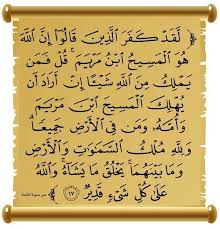 ﴿ لَّقَدْ كَفَرَ ٱلَّذِينَ قَالُوٓا۟ إِنَّ ٱللَّهَ
هُوَ ٱلْمَسِيحُ ٱبْنُ مَرْيَمَ ۚ قُلْ فَمَن
يَمْلِكُ مِنَ ٱللَّهِ شَيْـًٔا إِنْ أَرَادَ أَن
يُهْلِكَ ٱلْمَسِيحَ ٱبْنَ مَرْيَمَ
وَأُمَّهُۥ وَمَن فِى ٱلْأَرْضِ جَمِيعًا ۗ
وَلِلَّهِ مُلْكُ ٱلسَّمَٰوَٰتِ وَٱلْأَرْضِ
وَمَا بَيْنَهُمَا ۚ يَخْلُقُ مَا يَشَآءُ ۚ وَٱللَّهُ
عَلَىٰ كُلِّ شَىْءٍ قَدِيرٌ ١٧ ﴾ من سورة المائدة